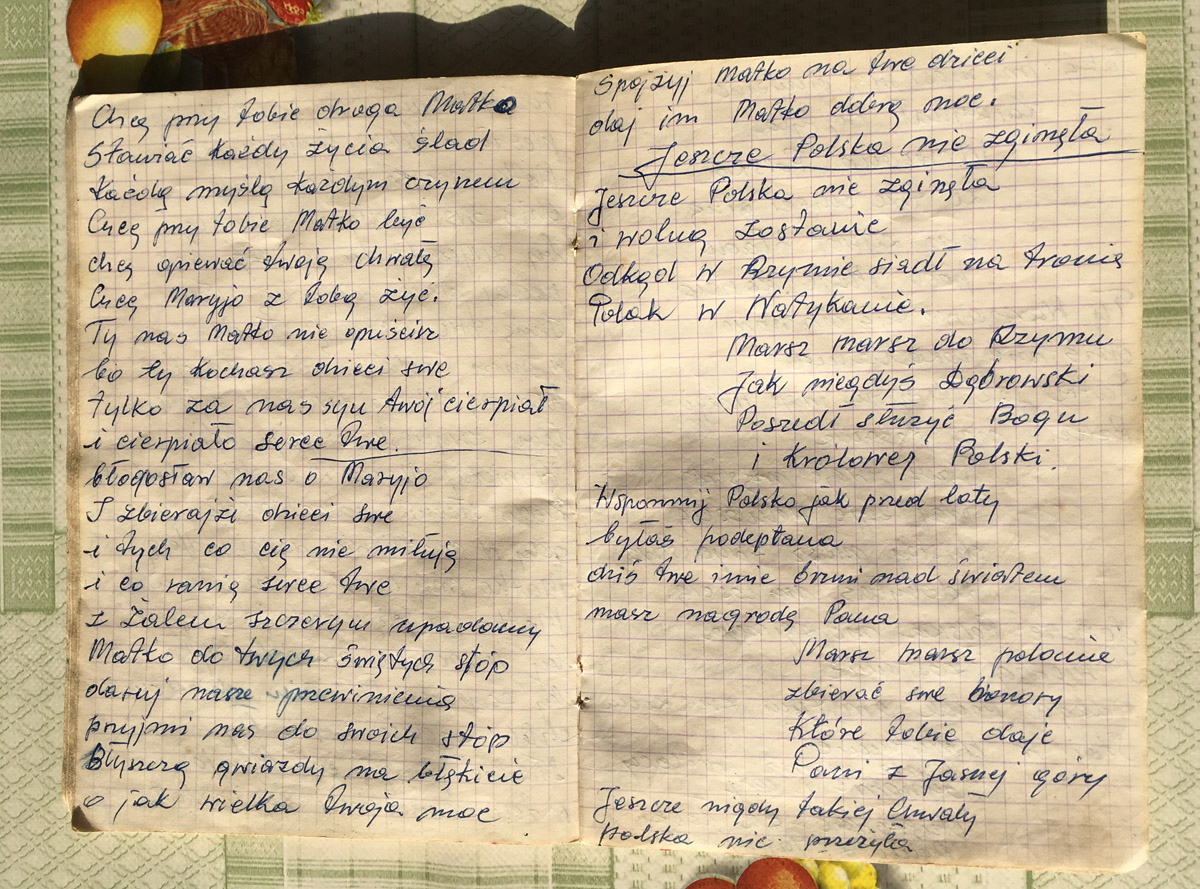 Chcę przy tobie droga Matko
Stawiać każdy życia ślad
Każdą myślą każdym czynem
Chcę przy tobie Matko być
chcę opiewać twoją chwałę
Chcę Maryjo z tobą żyć.
Ty nas Matko nie opuścisz
bo ty kochasz dzieci swe
tylko za nas syn twój cierpiał
i cierpiało serce Twe.
błogosław nas o Maryjo
I zbierajżi dzieci swe
i tych co cię nie miłują
i co ranią serce twe
z Żalem szczerym upadamy
Matko do twych świętych stóp
daruj nasze przewinienia
przyjmi nas do swoich stóp
Błyszczą gwiazdy na błękicie
o jak wielka Twoja moc
Spojżyj Matko na twe dzieci
daj im Matko dobrą noc.
Jeszcze Polska nie zginęła
Jeszcze Polska nie zginęła
i wolną zostanie
Odkąd w Rzymie siadł na tronię
Polak w Watykanie.
Marsz marsz do Rzymu
Jak niegdyś Dąbrowski
Poszedł służyć Bogu
i Królowej Polski.
Wspomnij Polsko jak przed laty
byłaś podeptana
dziś twe imie brzmi nad światem
masz nagrodę Pana
Marsz marsz polonie
zbierać swe honory
Które tobie daje
Pani z Jasnej góry
Jeszcze nigdy takiej Chwały
Polska nie przeżyła